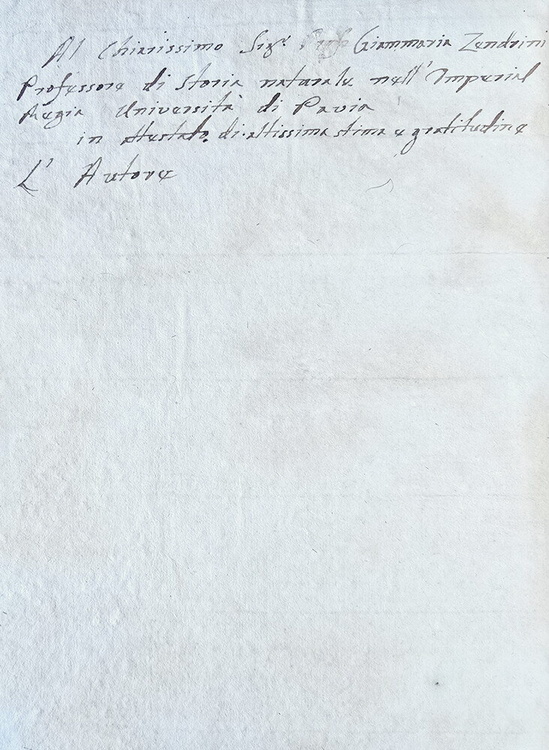 Al Chiarissimo Sigr. Prof. Giammaria Zendrini
Professore di Storia naturale nell' Imperial
Regia Università di Pavia
in attestato di altissima stima e gratitudine
L' Autore